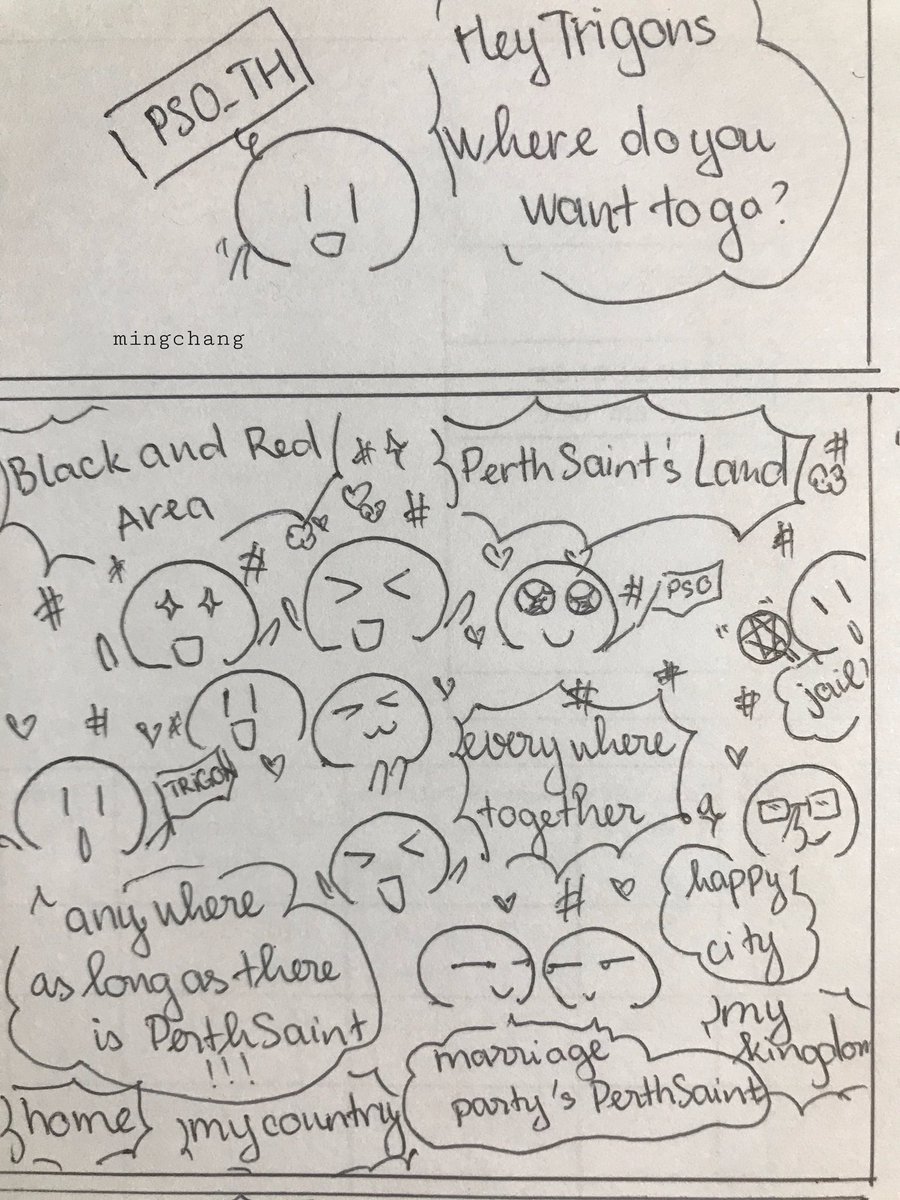 PSO_TH
Hey Trigons
where do you
want to go?
mingchang
Black and Red
Area
Perth Saint's Land
PSO
jail
TRIGON
everywhere
together
happy
city
anywhere
as long as there
is PerthSaint
!!!
my
kingdom
marriage
party's PerthSaint
home
my country